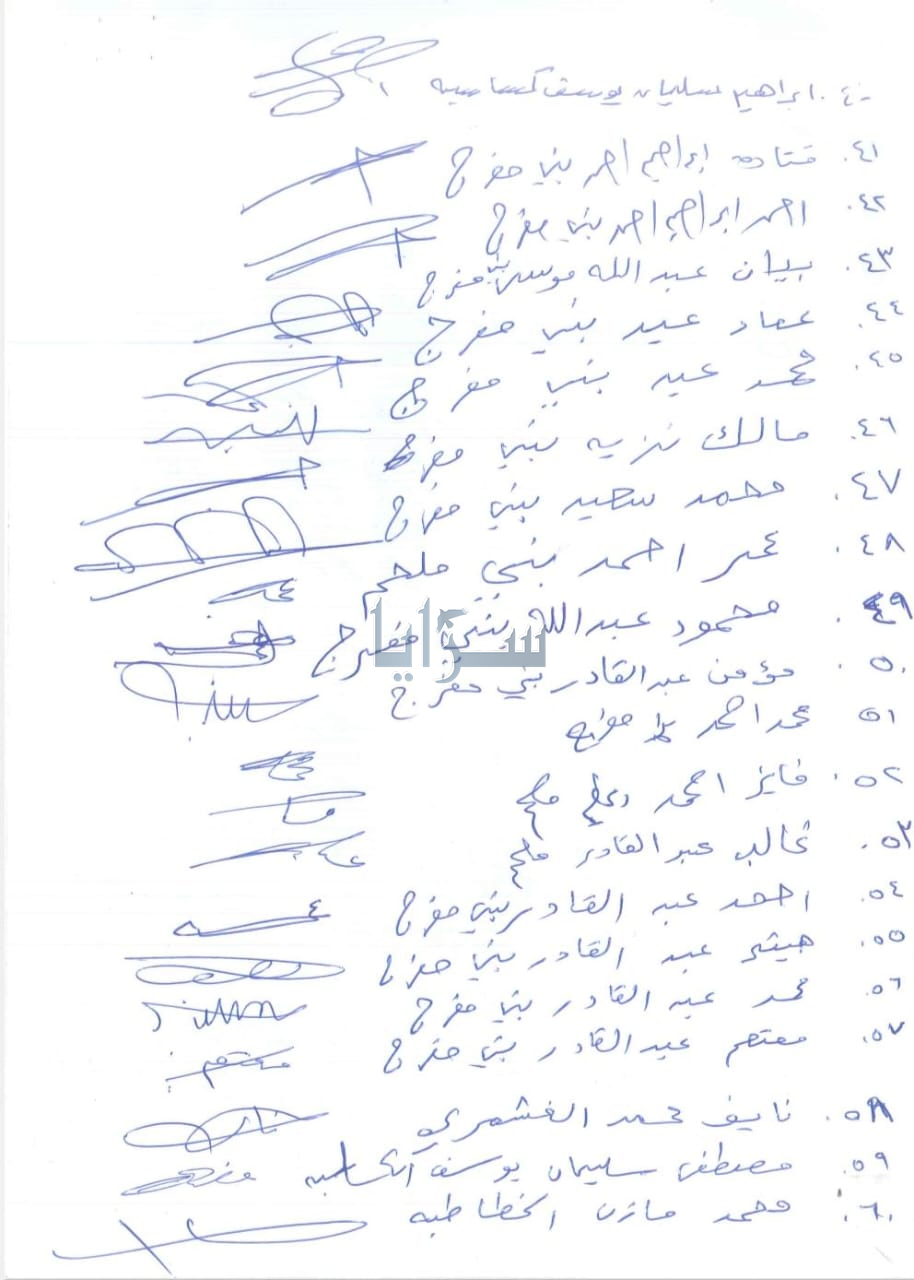 ٤٠. ابراهيم سليمان يوسف كساسبه
٤١. قتاده ابراهيم احمد بني مفرج
٤٢. احمد ابراهيم احمد بني مفرج
٤٣. بيان عبد الله موسى بني مفرج
٤٤. عماد عيد بني مفرج
٤٥. محمد عيد بني مفرج
٤٦. مالك نزيه بني مفرج
٤٧. محمد سعيد بني مفرج
٤٨. عمر احمد بني ملحم
٤٩. محمود عبدالله بني مفرج
سرايا
٥٠. مؤمن عبدالقادر بني مفرج
٥١ محمد احمد مفرج
٥٢. فايز احمد ملحم
٥٣. غالب عبدالقادر ملحم
٥٤. احمد عبد القادر بني مفرج
٥٥. هيثم عبد القادر بني مفرج
٥٦. محمد عبد القادر بني مفرج
٥٧. معتصم عبدالقادر بني مفرج
معتصم
٥٨. نايف محمد الغشمري
٥٩. مصطفى سليمان يوسف الكساسبه
٦٠. محمد مازن الخطاطبه